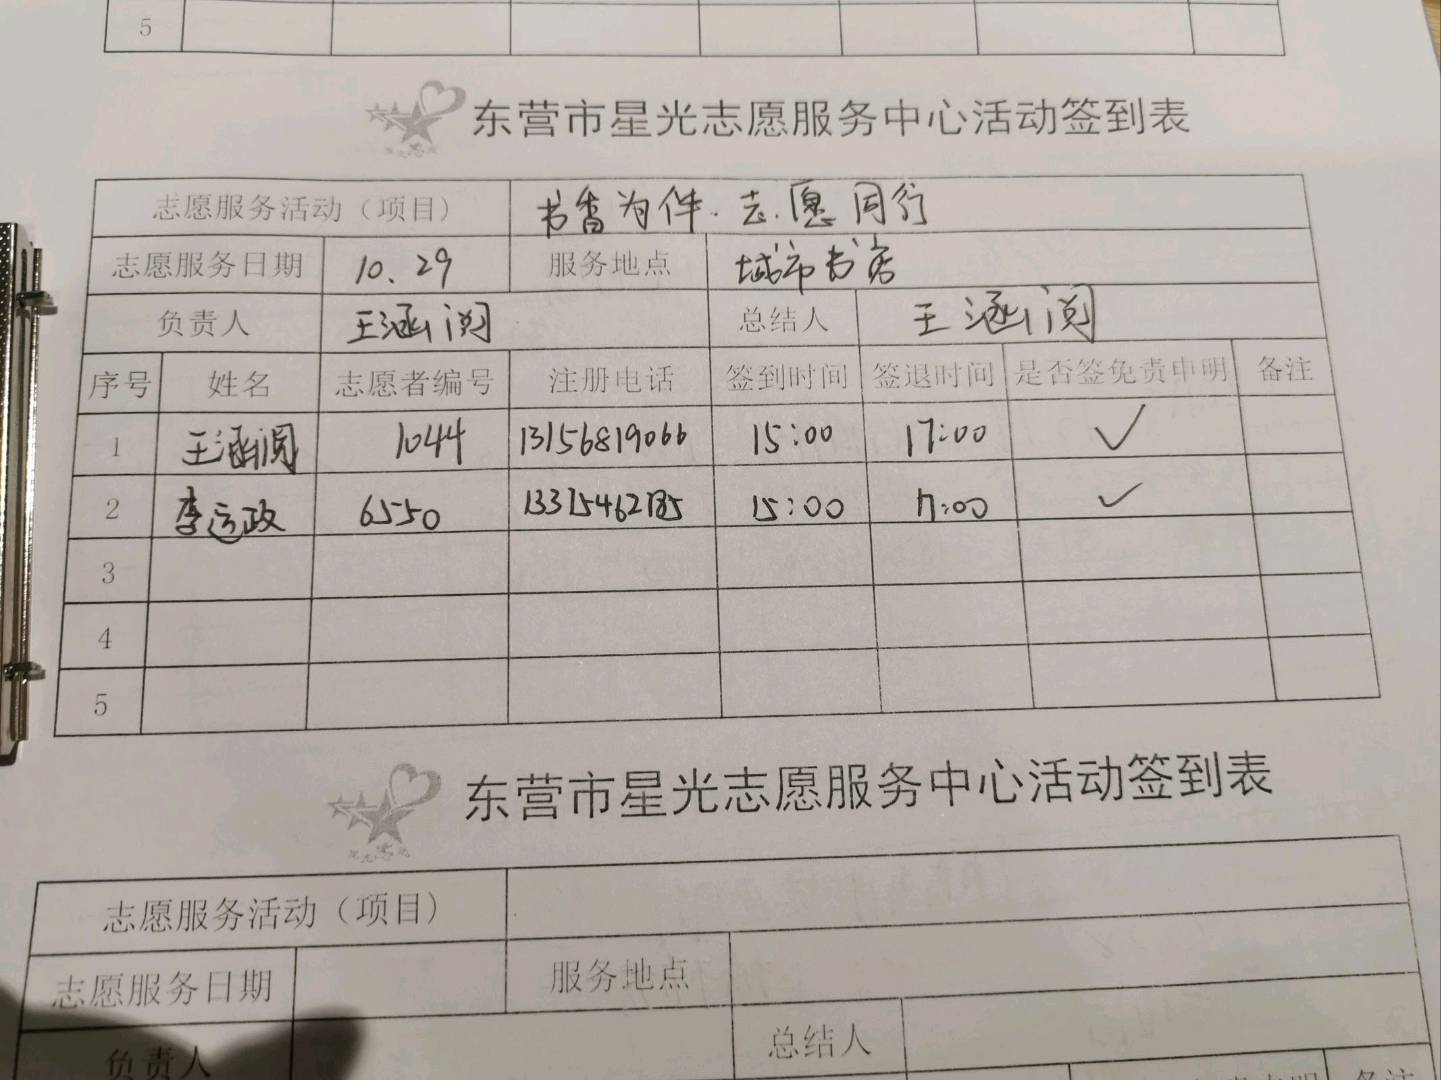 5
东营市星光志愿服务中心活动签到表
志愿服务活动（项目） 书香为伴.志愿同行
志愿服务日期 10.29 服务地点 城市书房
负责人 王涵阅 总结人 王涵阅
序号 姓名 志愿者编号 注册电话 签到时间 签退时间 是否签免责申明 备注
1 王涵阅 1044 13156819066 15:00 17:00 ✓
2 李运政 6550 15:00 17:00 ✓
3
4
5
东营市星光志愿服务中心活动签到表
志愿服务活动（项目）
志愿服务日期 服务地点
负责人 总结人
备注